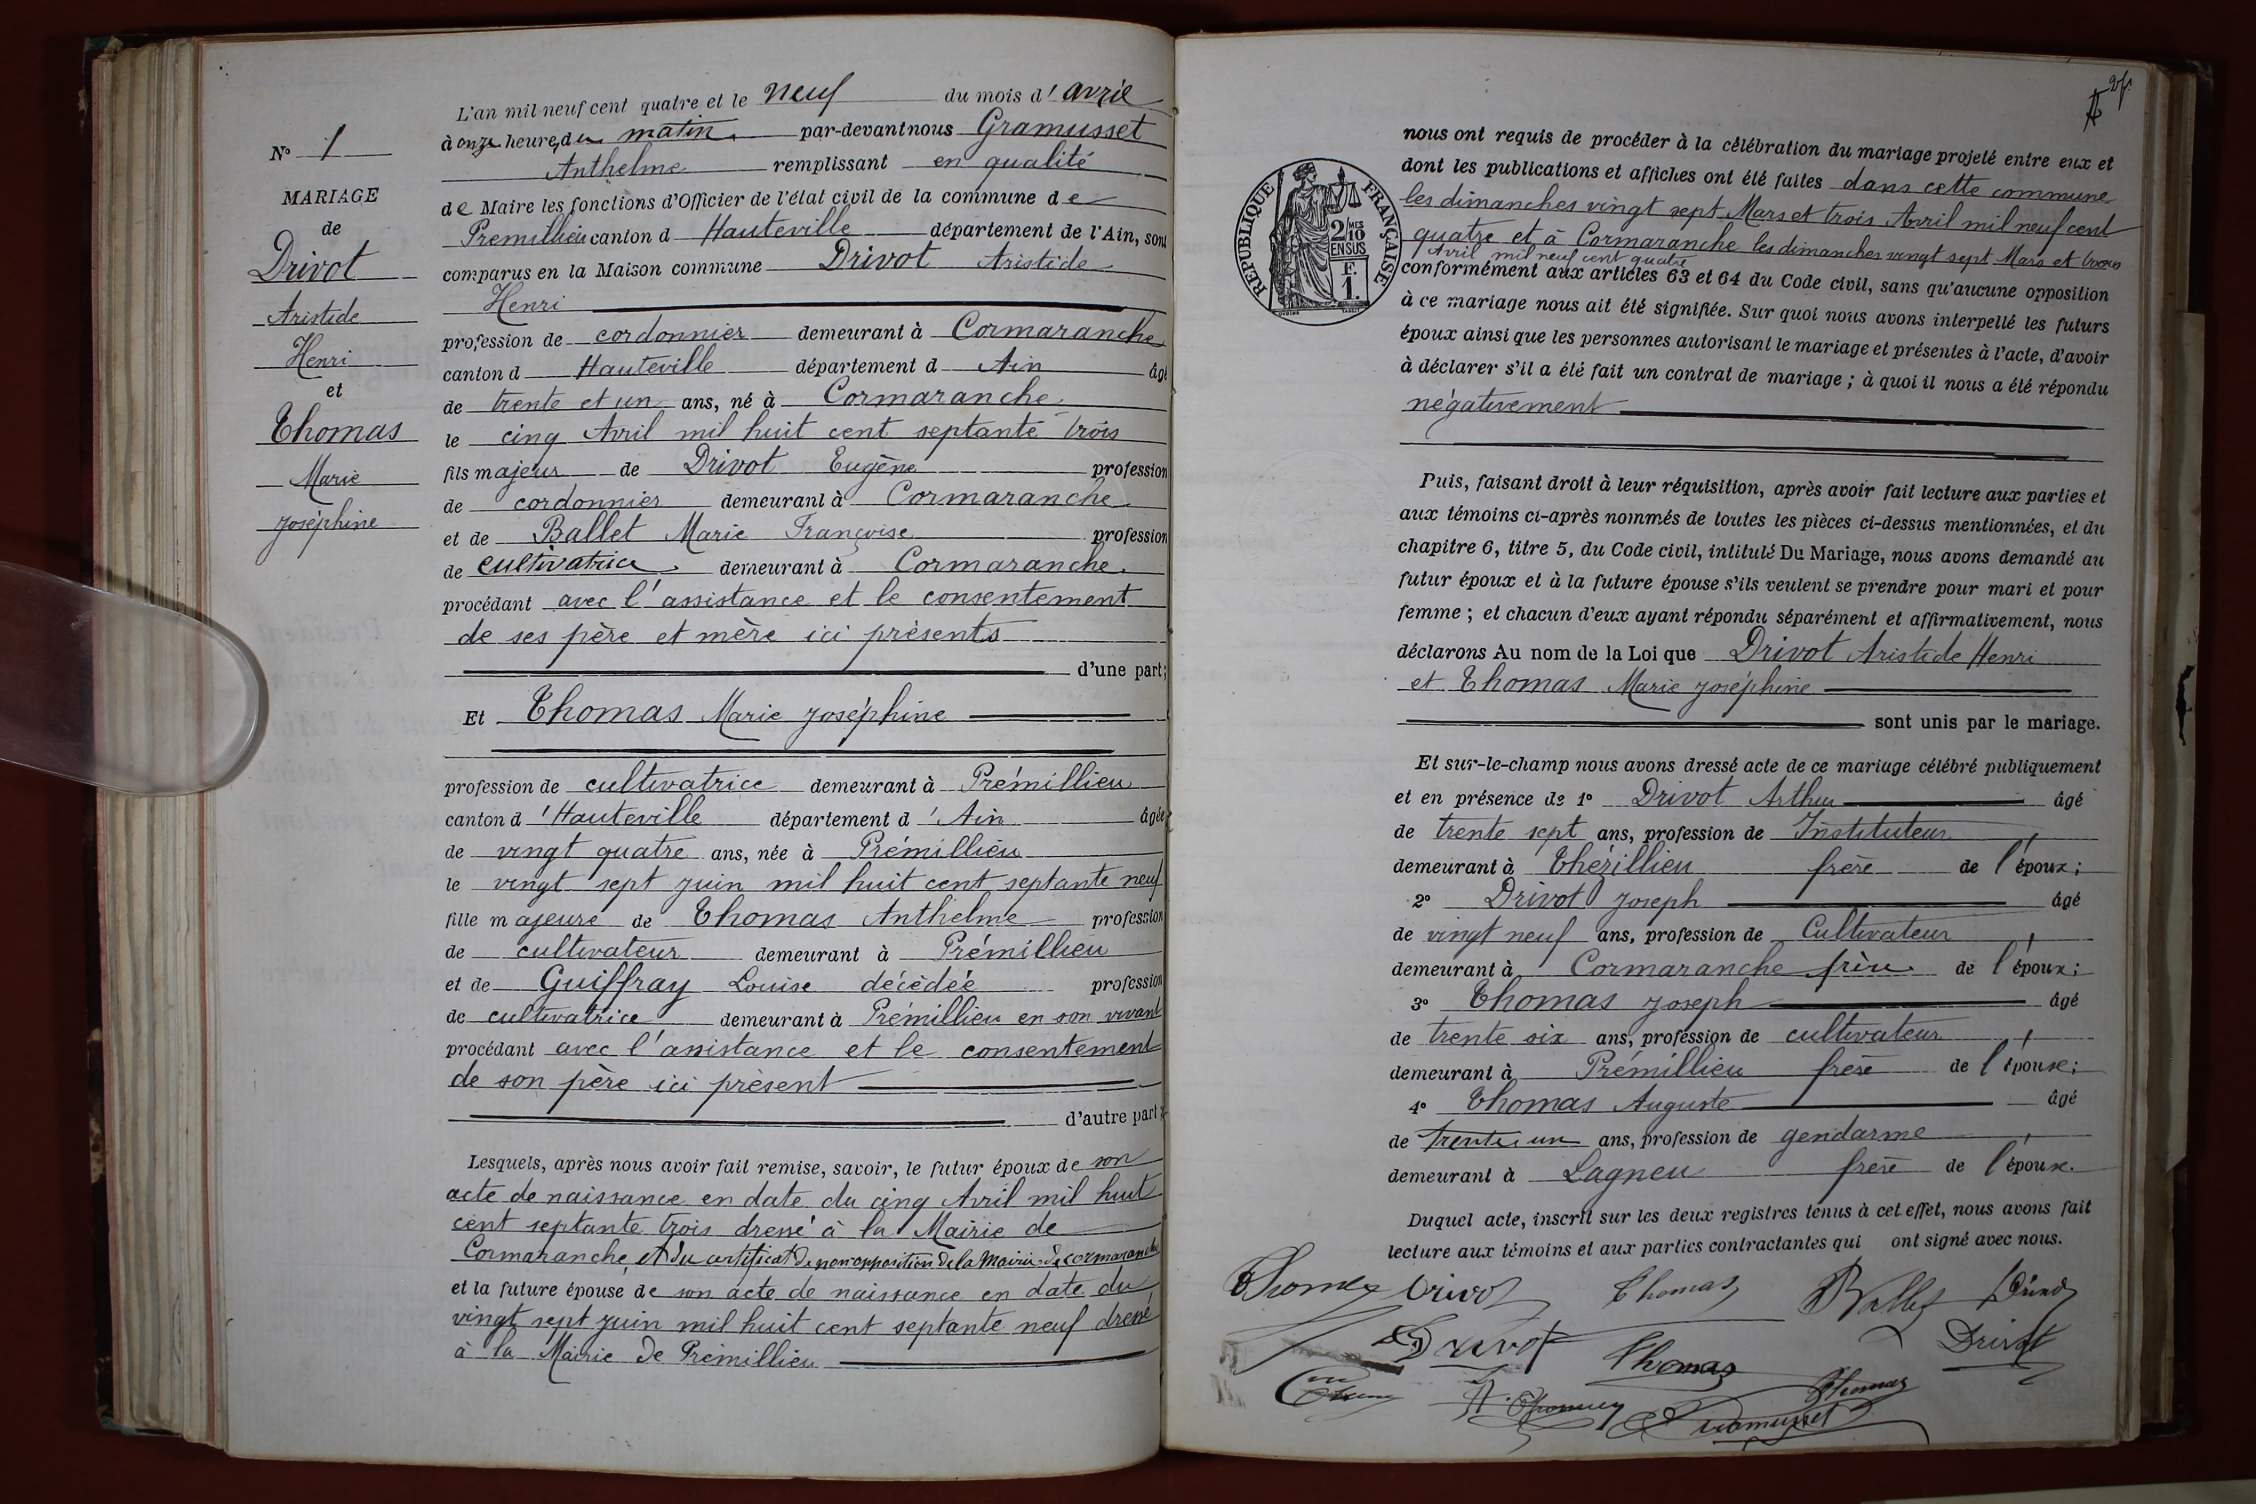 N° 1
MARIAGE
de
Drivot
Aristide
Henri
et
Thomas
Marie
Joséphine
L'an mil neuf cent quatre et le neuf du mois d' avril
à onze heure, du matin, par-devant nous Gramusset
Anthelme remplissant en qualité
de Maire les fonctions d'Officier de l'état civil de la commune de
Premillieu canton d Hauteville département de l'Ain, sont
comparus en la Maison commune Drivot Aristide
Henri
profession de cordonnier demeurant à Cormaranche
canton d Hauteville département d Ain âgé
de trente et un ans, né à Cormaranche
le cinq Avril mil huit cent septante trois
fils majeur de Drivot Eugène profession
de cordonnier demeurant à Cormaranche
et de Ballet Marie Françoise profession
de cultivatrice demeurant à Cormaranche.
procédant avec l'assistance et le consentement
de ses père et mère ici présents
d'une part;
Et Thomas Marie Joséphine
profession de cultivatrice demeurant à Prémillieu
canton d 'Hauteville département d 'Ain âgée
de vingt quatre ans, née à Prémillieu
le vingt sept juin mil huit cent septante neuf
fille majeure de Thomas Anthelme profession
de cultivateur demeurant à Prémillieu
et de Guiffray Louise décèdée profession
de cultivatrice demeurant à Prémillieu en son vivant
procédant avec l'assistance et le consentement
de son père ici présent
d'autre part;
Lesquels, après nous avoir fait remise, savoir, le futur époux de son
acte de naissance en date du cinq Avril mil huit
cent septante trois dressé à la Mairie de
Cormaranche, et du certificat de non opposition de la Mairie de Cormaranche
et la future épouse de son acte de naissance en date du
vingt sept juin mil huit cent septante neuf dressé
à la Mairie de Prémillieu
2
nous ont requis de procéder à la célébration du mariage projeté entre eux et
dont les publications et affiches ont été faites dans cette commune
les dimanches vingt sept Mars et trois Avril mil neuf cent
quatre et à Cormaranche les dimanches vingt sept Mars et trois
Avril mil neuf cent quatre
conformément aux articles 63 et 64 du Code civil, sans qu'aucune opposition
à ce mariage nous ait été signifiée. Sur quoi nous avons interpellé les futurs
époux ainsi que les personnes autorisant le mariage et présentes à l'acte, d'avoir
à déclarer s'il a été fait un contrat de mariage ; à quoi il nous a été répondu
négativement
RÉPUBLIQUE FRANÇAISE
2/10
MES
EN SUS
F.
1.
Puis, faisant droit à leur réquisition, après avoir fait lecture aux parties et
aux témoins ci-après nommés de toutes les pièces ci-dessus mentionnées, et du
chapitre 6, titre 5, du Code civil, intitulé Du Mariage, nous avons demandé au
futur époux et à la future épouse s'ils veulent se prendre pour mari et pour
femme ; et chacun d'eux ayant répondu séparément et affirmativement, nous
déclarons Au nom de la Loi que Drivot Aristide Henri
et Thomas Marie Joséphine
sont unis par le mariage.
Et sur-le-champ nous avons dressé acte de ce mariage célébré publiquement
et en présence de 1° Drivot Arthur âgé
de trente sept ans, profession de Instituteur
demeurant à Thézillieu frère de l'époux;
2° Drivot Joseph âgé
de vingt neuf ans, profession de Cultivateur
demeurant à Cormaranche frère de l'époux;
3° Thomas Joseph âgé
de trente six ans, profession de cultivateur
demeurant à Prémillieu frère de l'épouse;
4° Thomas Auguste âgé
de trente un ans, profession de gendarme
demeurant à Lagneu frère de l'épouse.
Duquel acte, inscrit sur les deux registres tenus à cet effet, nous avons fait
lecture aux témoins et aux parties contractantes qui ont signé avec nous.
Thomas Drivot Thomas Ballet Drivot
Drivot Thomas Drivot
Thomas Thomas
Gramusset